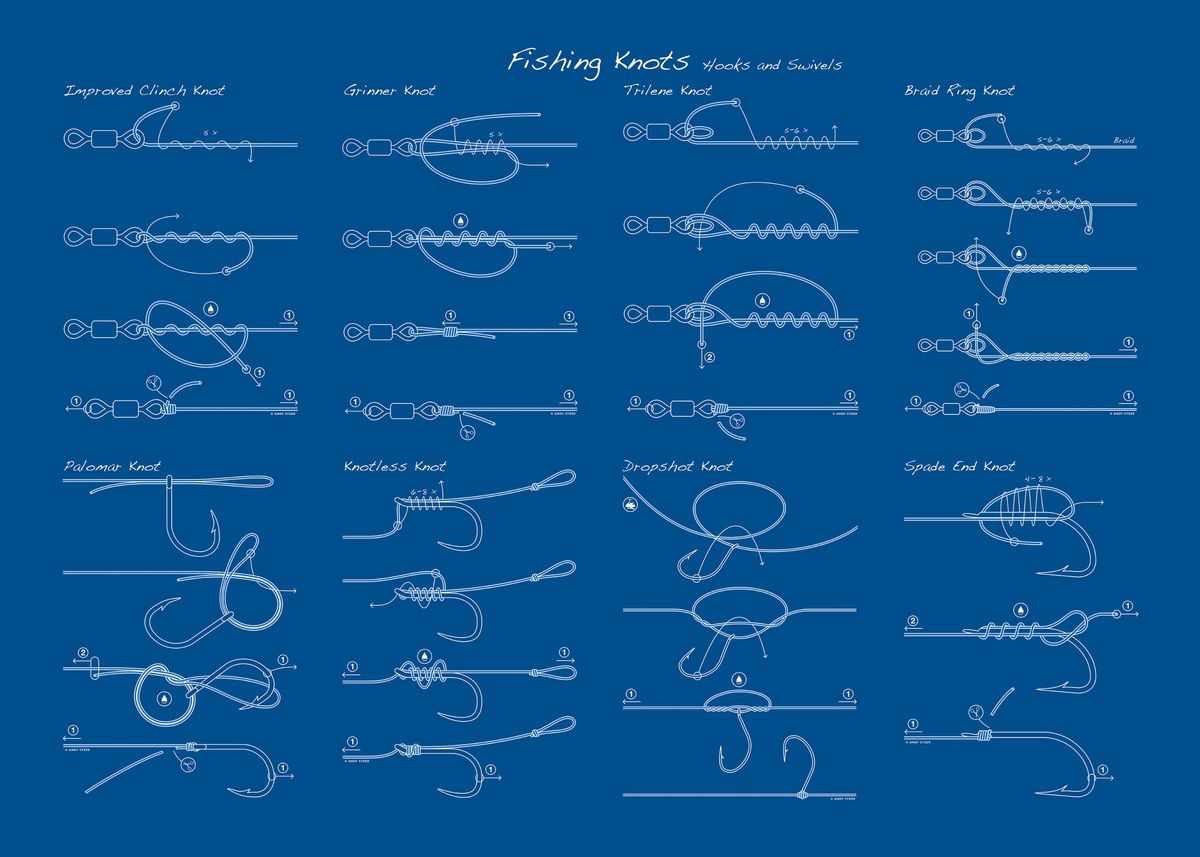 Fishing Knots Hooks and Swivels
Improved Clinch Knot
5 x
1
1
1
1
© ANDY STEER
Grinner Knot
5 x
1
1
1
1
© ANDY STEER
Trilene Knot
5-6 x
1
2
1
1
© ANDY STEER
Braid Ring Knot
5-6 x
Braid
5-6 x
1
1
1
1
© ANDY STEER
Palomar Knot
2
1
1
1
© ANDY STEER
Knotless Knot
6-8 x
1
1
1
1
© ANDY STEER
Dropshot Knot
1
1
© ANDY STEER
Spade End Knot
4-8 x
1
2
1
1
© ANDY STEER